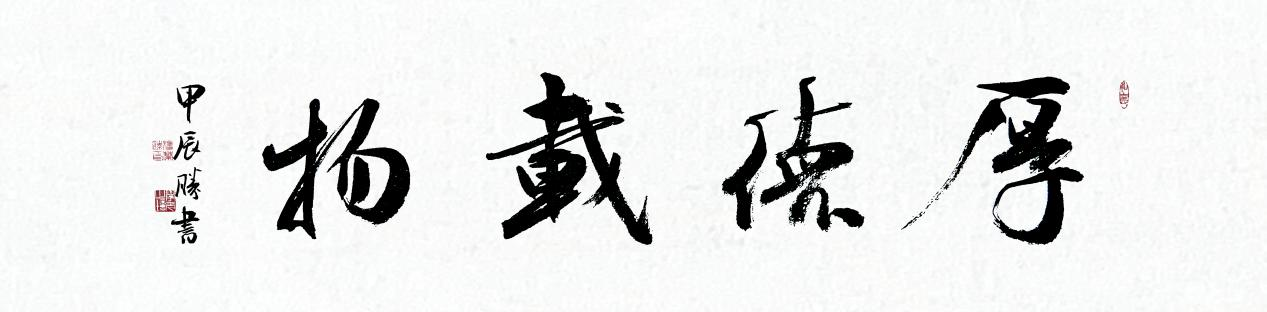 厚德載物
甲辰勝書